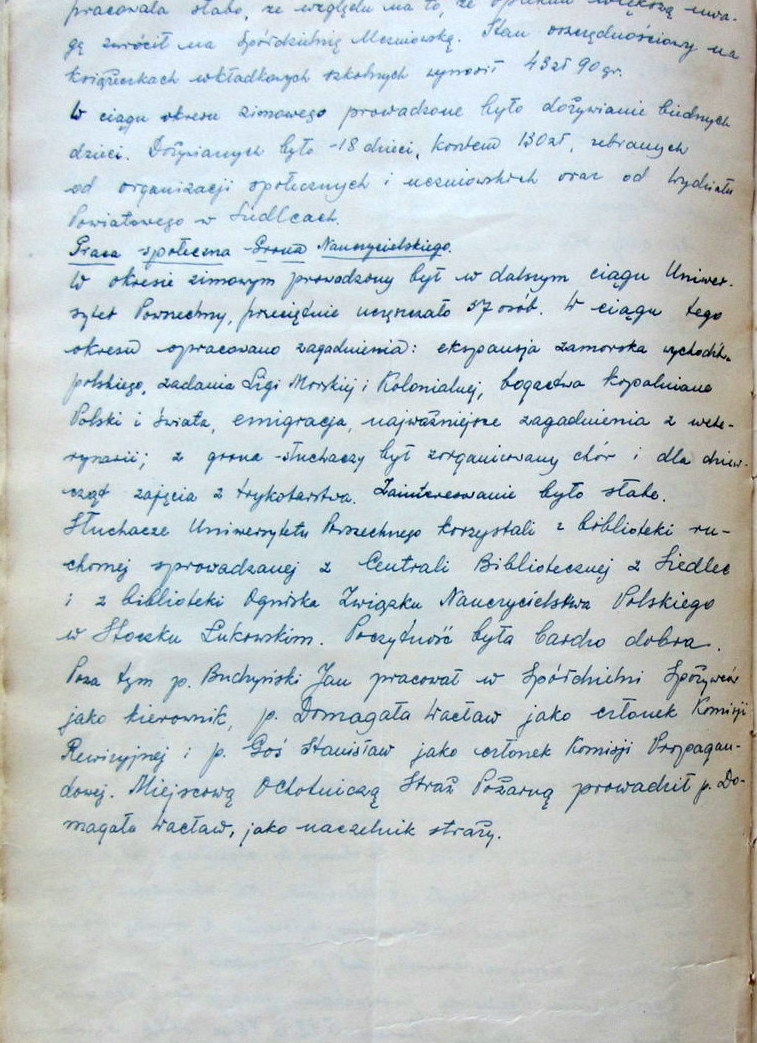 pracowała słabo, ze względu na to, że opiekun większą uwa-
gę zwrócił na Spółdzielnię Uczniowską. Stan oszczędnościowy na
książeczkach wkładkowych szkolnych wynosił 43 zł 90 gr.
W ciągu okresu zimowego prowadzone było dożywianie biednych
dzieci. Dożywianych było -18 dzieci, kosztem 130 zł, zebranych
od organizacji społecznych i uczniowskich oraz od Wydziału
Powiatowego w Siedlcach.
Praca społeczna Grona Nauczycielskiego.
W okresie zimowym prowadzony był w dalszym ciągu Uniwer-
sytet Powszechny, przeciętnie uczęszczało 37 osób. W ciągu tego
okresu opracowano zagadnienia: ekspansja zamorska wychodź.
polskiego, zadania Ligi Morskiej i Kolonialnej, bogactwa kopalniane
Polski i świata, emigracja, najważniejsze zagadnienia z wete-
rynarii; z grona słuchaczy był zorganizowany chór i dla dziew-
cząt zajęcia z trykotarstwa. Zainteresowanie było słabe.
Słuchacze Uniwersytetu Powszechnego korzystali z biblioteki ru-
chomej sprowadzanej z Centrali Bibliotecznej z Siedlec
i z biblioteki Ogniska Związku Nauczycielstwa Polskiego
w Stoczku Łukowskim. Poczytność była bardzo dobra.
Poza tym p. Buczyński Jan pracował w Spółdzielni Spożywców
jako kierownik, p. Domagała Wacław jako członek Komisji
Rewizyjnej i p. Goś Stanisław jako członek Komisji Propagan-
dowej. Miejscową Ochotniczą Straż Pożarną prowadził p. Do-
magała Wacław, jako naczelnik straży.